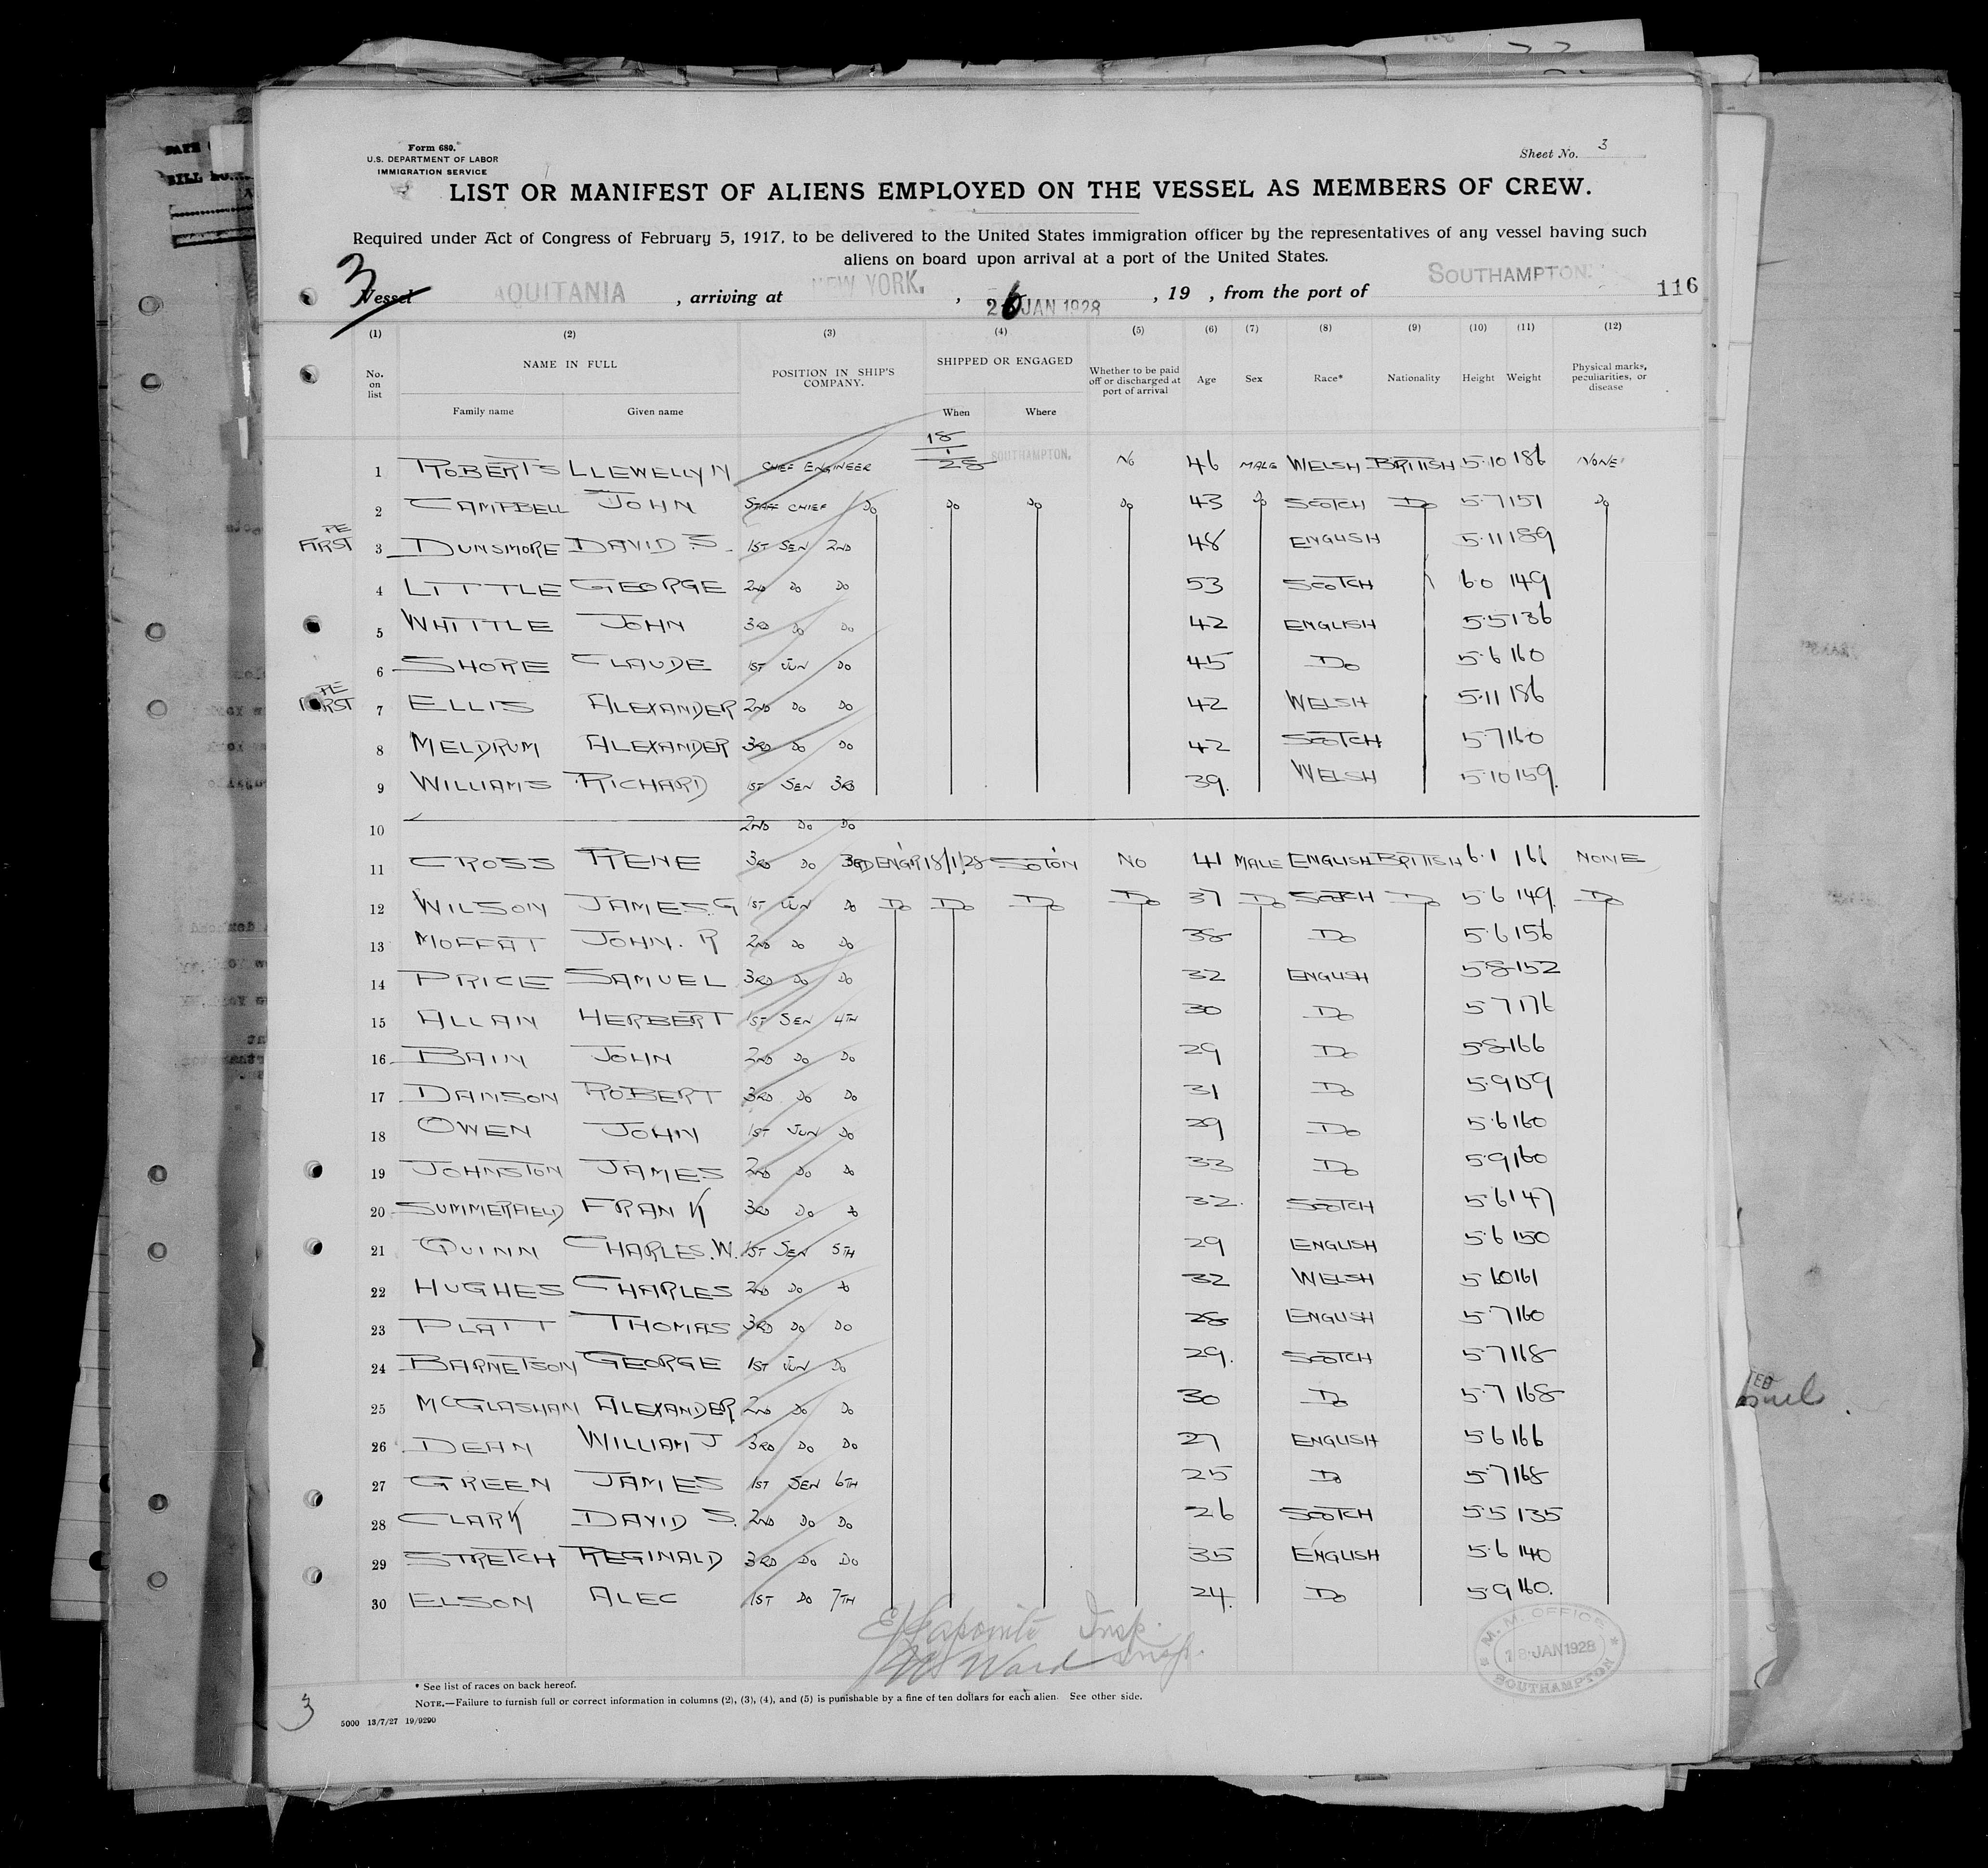 Form 680.
U.S. DEPARTMENT OF LABOR
IMMIGRATION SERVICE
Sheet No. 3
LIST OR MANIFEST OF ALIENS EMPLOYED ON THE VESSEL AS MEMBERS OF CREW.
Required under Act of Congress of February 5, 1917, to be delivered to the United States immigration officer by the representatives of any vessel having such
aliens on board upon arrival at a port of the United States.
3
Vessel AQUITANIA, arriving at NEW YORK., 26 JAN 1928, 19 , from the port of SOUTHAMPTON. 116
(1) (2) (3) (4) (5) (6) (7) (8) (9) (10) (11) (12)
No. on list NAME IN FULL POSITION IN SHIP'S COMPANY. SHIPPED OR ENGAGED Whether to be paid off or discharged at port of arrival Age Sex Race* Nationality Height Weight Physical marks, peculiarities, or disease
Family name Given name When Where
1 ROBERTS LLEWELLYN CHIEF ENGINEER 18/1/28 SOUTHAMPTON. NO 46 MALE WELSH BRITISH 5·10 186 NONE
2 CAMPBELL JOHN STAFF CHIEF DO DO DO DO 43 DO SCOTCH DO 5·7 151 DO
PE FIRST 3 DUNSMORE DAVID S. 1ST SEN 2ND 48 ENGLISH 5·11 189
4 LITTLE GEORGE 2ND DO DO 53 SCOTCH 6·0 149
5 WHITTLE JOHN 3RD DO DO 42 ENGLISH 5·5 136
6 SHORE CLAUDE 1ST JUN DO 45 DO 5·6 160
PE FIRST 7 ELLIS ALEXANDER 2ND DO DO 42 WELSH 5·11 186
8 MELDRUM ALEXANDER 3RD DO DO 42 SCOTCH 5·7 160
9 WILLIAMS RICHARD 1ST SEN 3RD 39. WELSH 5·10 159.
10 2ND DO DO
11 CROSS RENE 3RD DO 3RD ENGR 18/1/28 SOTON NO 41 MALE ENGLISH BRITISH 6·1 166 NONE
12 WILSON JAMES.G 1ST JUN DO DO DO DO DO 37 DO SCOTCH DO 5·6 149. DO
13 MOFFAT JOHN. R 2ND DO DO 38 DO 5·6 156
14 PRICE SAMUEL 3RD DO DO 32 ENGLISH 5·8 152
15 ALLAN HERBERT 1ST SEN 4TH 30 DO 5·7 176
16 BAIN JOHN 2ND DO DO 29 DO 5·8 166
17 DAWSON ROBERT 3RD DO DO 31 DO 5·9 159
18 OWEN JOHN 1ST JUN DO 29 DO 5·6 160
19 JOHNSTON JAMES 2ND DO DO 33 DO 5·9 160
20 SUMMERFIELD FRANK 3RD DO DO 32. SCOTCH 5·6 147
21 QUINN CHARLES.W. 1ST SEN 5TH 29 ENGLISH 5·6 150
22 HUGHES CHARLES 2ND DO DO 32 WELSH 5·10 161
23 PLATT THOMAS 3RD DO DO 28 ENGLISH 5·7 160
24 BARNETSON GEORGE 1ST JUN DO 29. SCOTCH 5·7 168
25 MCGLASHAN ALEXANDER 2ND DO DO 30 DO 5·7 168
26 DEAN WILLIAM J 3RD DO DO 27 ENGLISH 5·6 166
27 GREEN JAMES 1ST SEN 6TH 25 DO 5·7 168
28 CLARK DAVID S. 2ND DO DO 26 SCOTCH 5·5 135
29 STRETCH REGINALD 3RD DO DO 35 ENGLISH 5·6 140
30 ELSON ALEC 1ST DO 7TH 24. DO 5·9 160.
Insp.
Ward Insp.
M. M. OFFICE
18 JAN 1928
SOUTHAMPTON
* See list of races on back hereof.
NOTE.—Failure to furnish full or correct information in columns (2), (3), (4), and (5) is punishable by a fine of ten dollars for each alien. See other side.
3
5000 13/7/27 19/9290